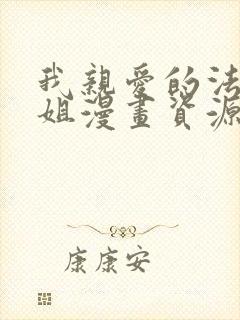 我親愛的法
姐漫畫資源
康康安